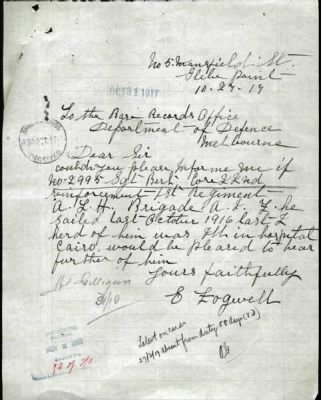 No 5 Mansfield St.
Glebe Point
10-27-17
OCT 31 1917
To the Base Records Office
Department of Defence
Melbourne
Dear Sir
could you please Informe me if
No-2995 Sgt
22nd
reinforcement 1st Regiment
A. L. H. Brigade A. I. F. he
sailed last October 1916 last I
herd of him was 9th in hospital
Cairo. would be pleased to hear
further of him
Yours faithfully
E Logwell
Gilligan
31/10
absent from duty